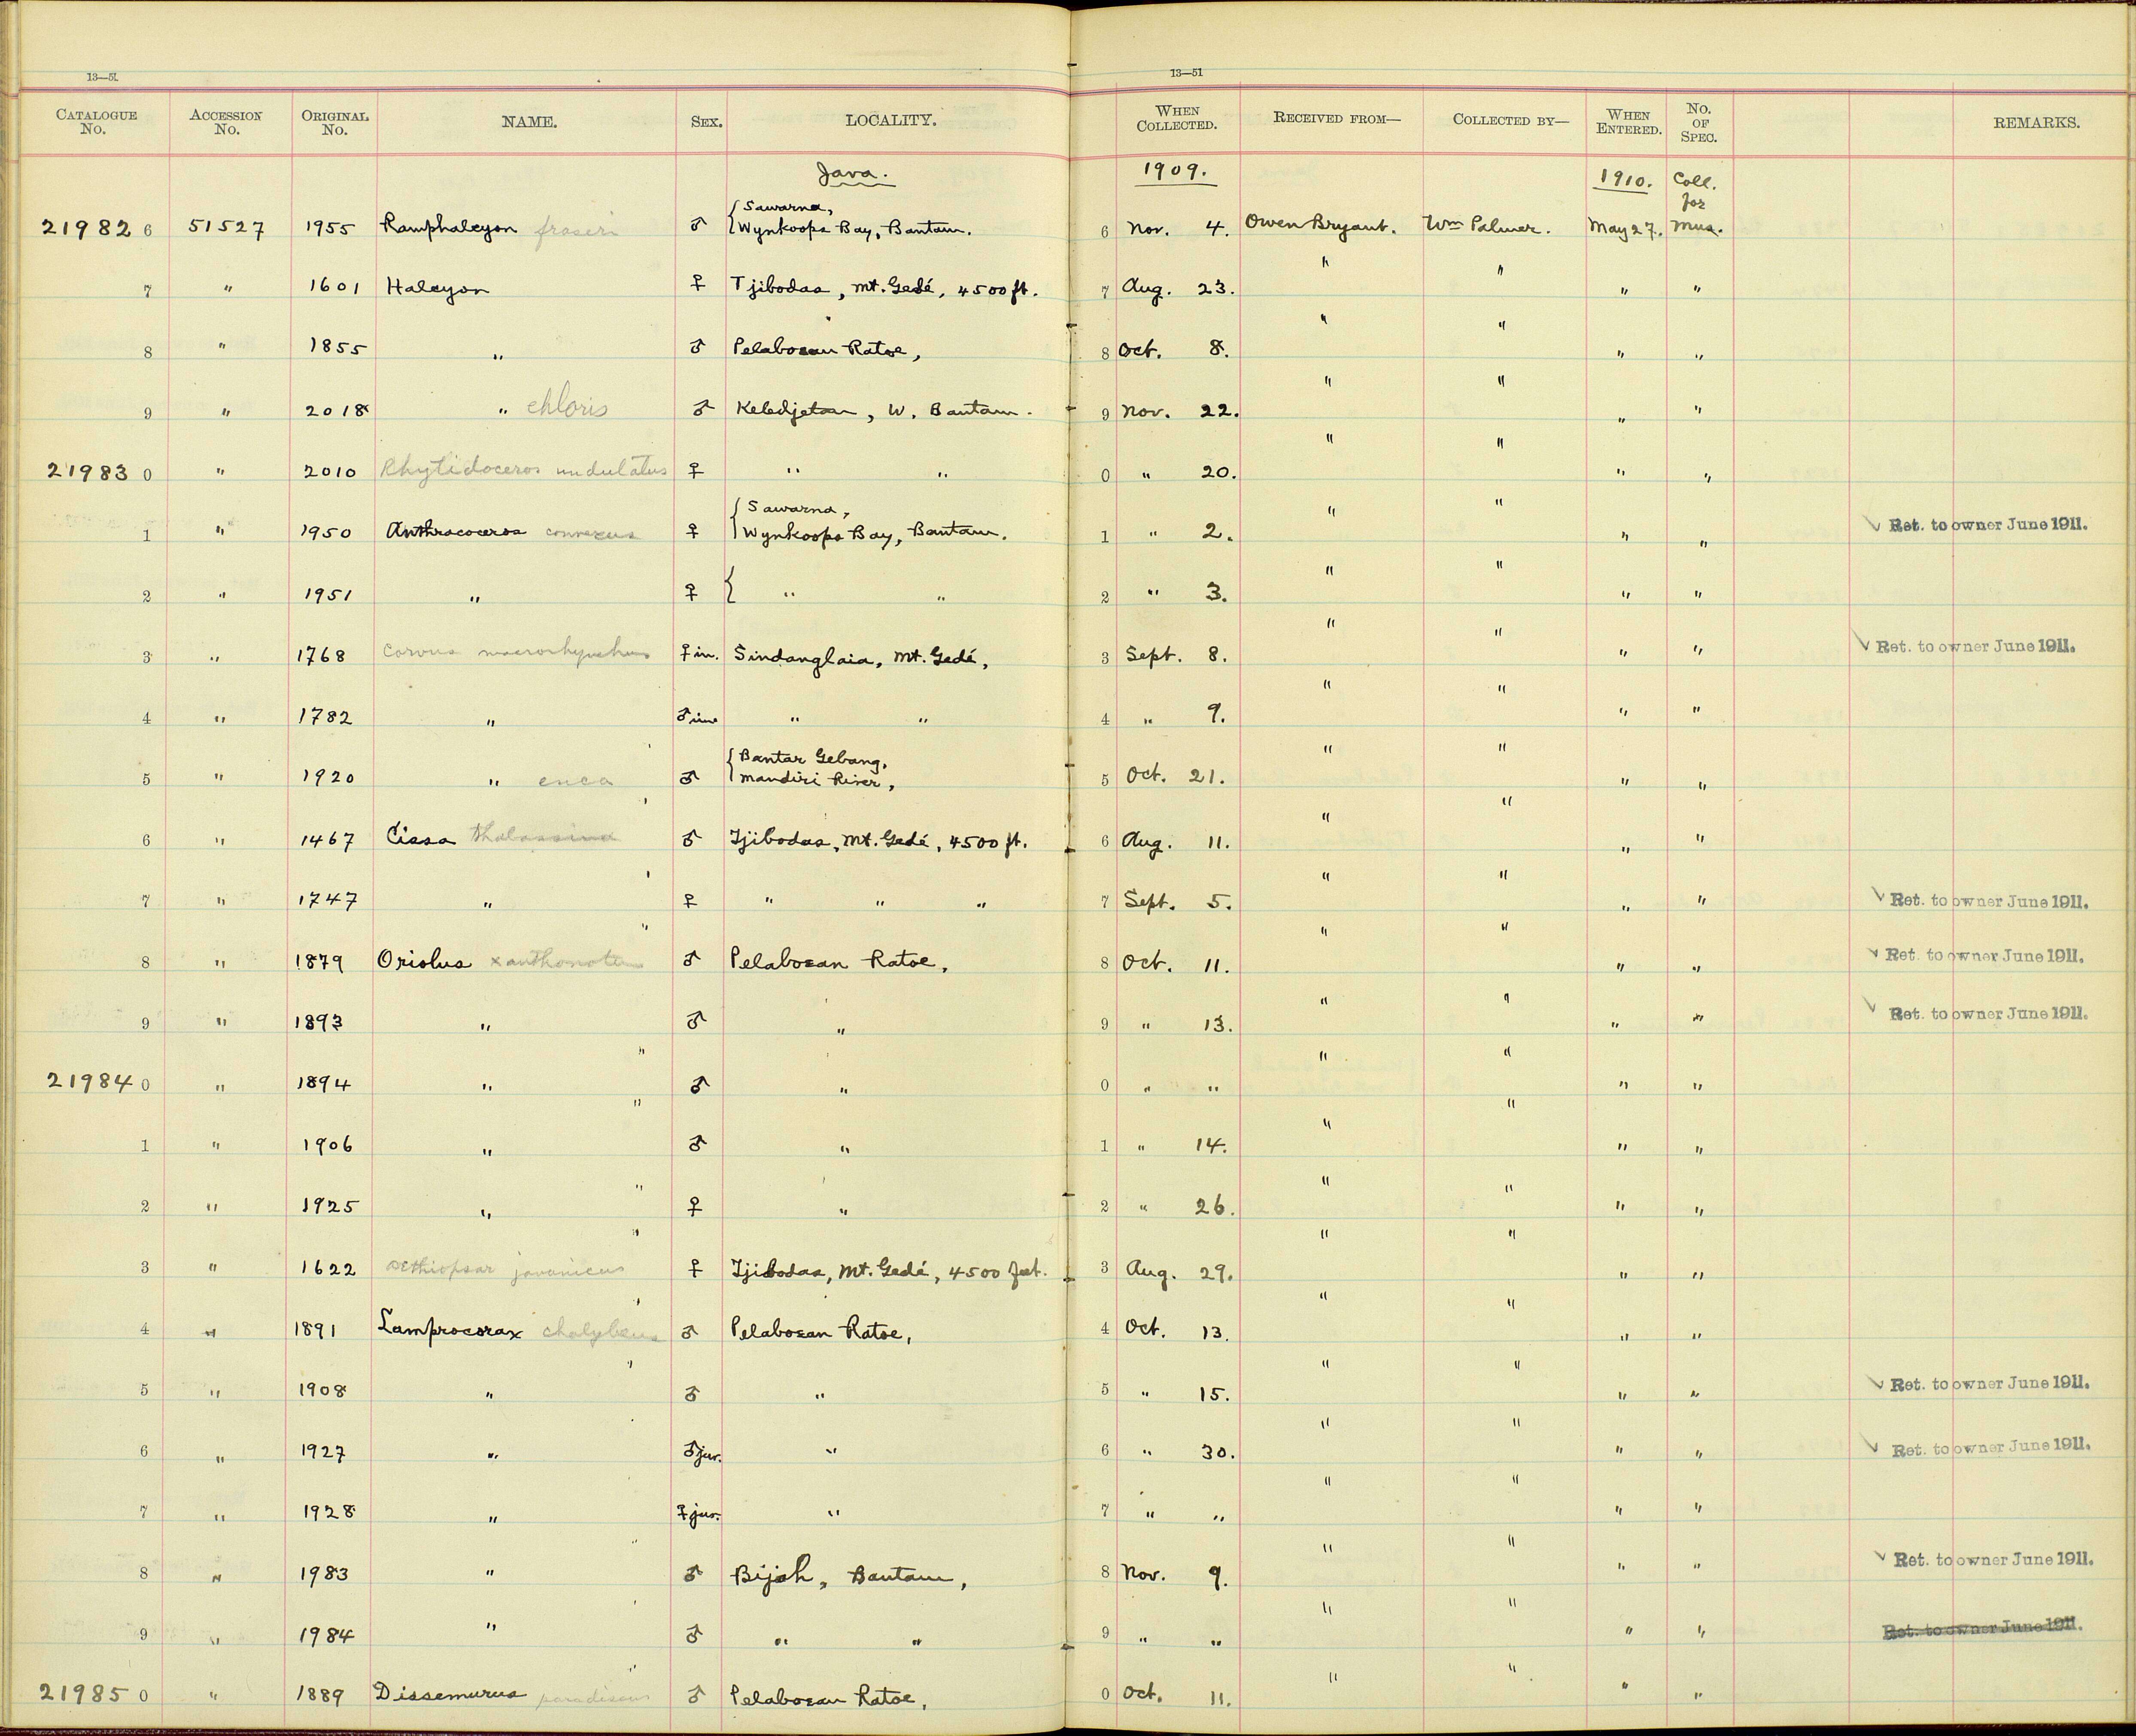 13—51
13—51
CATALOGUE No. ACCESSION No. ORIGINAL No. NAME. SEX. LOCALITY. WHEN COLLECTED. RECEIVED FROM— COLLECTED BY— WHEN ENTERED. No. OF SPEC. REMARKS.
Java. 1909. 1910. Coll. for
{Sawarna,
21982 6 51527 1955 Ramphalcyon fraseri ♂ Wynkoops Bay, Bantam. 6 Nov. 4. Owen Bryant. Wm Palmer. May 27. Mus.
7 " 1601 Halcyon ♀ Tjibodas, Mt. Gedé, 4500 ft. 7 Aug. 23. " " " "
8 " 1855 " ♂ Pelaboean Ratoe, 8 Oct. 8. " " " "
9 " 2018 " chloris ♂ Keledjetan, W. Bantam. 9 Nov. 22. " " " "
21983 0 " 2010 Rhytidoceros undulatus ♀ " " 0 " 20. " " " "
{Sawarna,
1 " 1950 Anthracoceros convexus ♀ Wynkoops Bay, Bantam. 1 " 2. " " " " Ret. to owner June 1911.
2 " 1951 " ♀ { " " 2 " 3. " " " "
3 " 1768 Corvus macrorhynchus ♀ im. Sindanglaia, Mt. Gedé, 3 Sept. 8. " " " " Ret. to owner June 1911.
4 " 1782 " ♂ im " " 4 " 9. " " " "
{Bantar Gebang,
5 " 1920 " enca ♂ Mandiri River, 5 Oct. 21. " " " "
6 " 1467 Cissa thalassina ♂ Tjibodas, Mt. Gedé, 4500 ft. 6 Aug. 11. " " " "
7 " 1747 " ♀ " " " 7 Sept. 5. " " " " Ret. to owner June 1911.
8 " 1879 Oriolus xanthonotus ♂ Pelaboean Ratoe, 8 Oct. 11. " " " " Ret. to owner June 1911.
9 " 1893 " ♂ " 9 " 13. " " " " Ret. to owner June 1911.
21984 0 " 1894 " ♂ " 0 " " " " " "
1 " 1906 " ♂ " 1 " 14. " " " "
2 " 1925 " ♀ " 2 " 26. " " " "
3 " 1622 Æthiopsar javanicus ♀ Tjibodas, Mt. Gedé, 4500 feet. 3 Aug. 29. " " " "
4 " 1891 Lamprocorax chalybeus ♂ Pelaboean Ratoe, 4 Oct. 13. " " " "
5 " 1908 " ♂ " 5 " 15. " " " " Ret. to owner June 1911.
6 " 1927 " ♂ juv. " 6 " 30. " " " " Ret. to owner June 1911.
7 " 1928 " ♀ juv. " 7 " " " " " "
8 " 1983 " ♂ Bijah, Bantam, 8 Nov. 9. " " " " Ret. to owner June 1911.
9 " 1984 " ♂ " " 9 " " " " " " Ret. to owner June 1911.
21985 0 " 1889 Dissemurus paradiseus ♂ Pelaboean Ratoe, 0 Oct. 11. " " " "